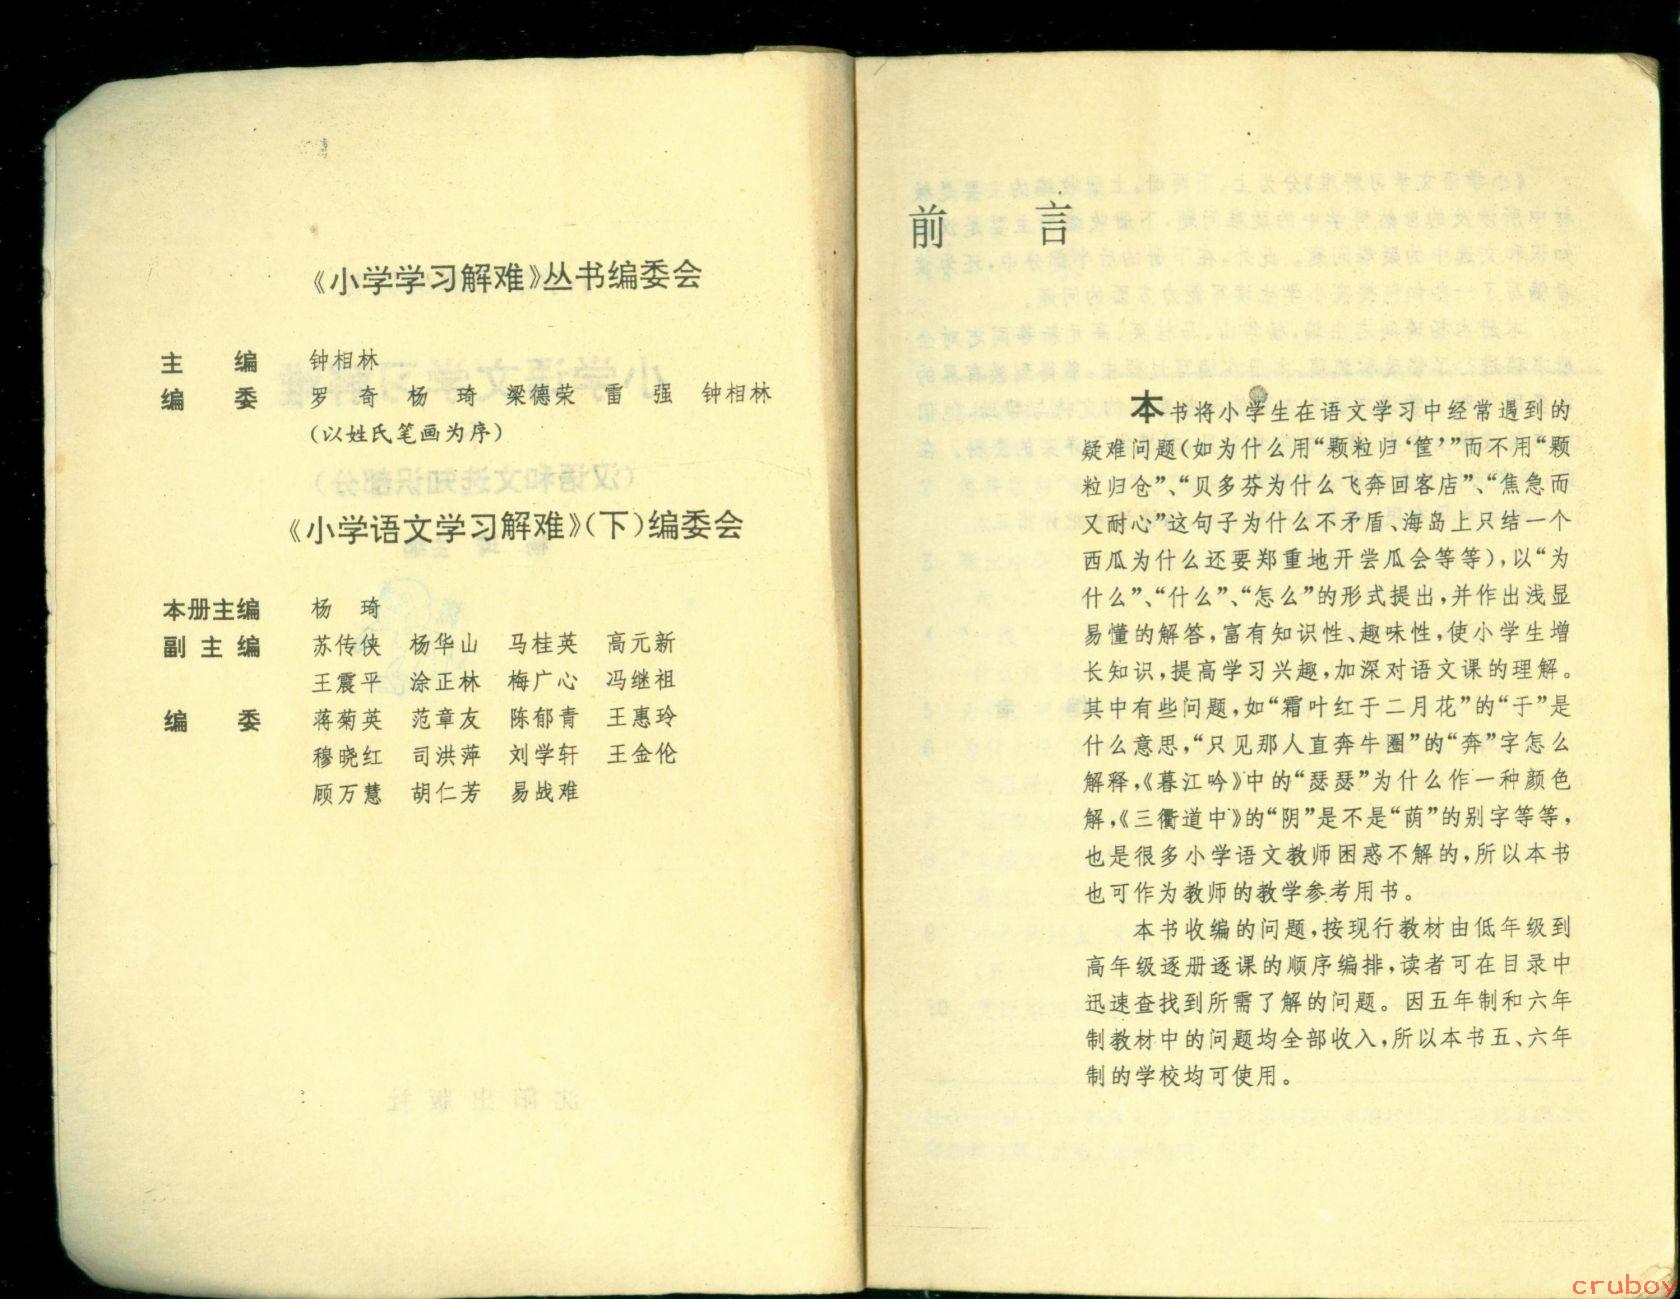 《小学学习解难》丛书编委会
主 编 钟相林
编 委 罗 奇 杨 琦 梁德荣 雷 强 钟相林
(以姓氏笔画为序)
《小学语文学习解难》(下)编委会
本册主编 杨 琦
副 主 编 苏传侠 杨华山 马桂英 高元新
王震平 涂正林 梅广心 冯继祖
编 委 蒋菊英 范章友 陈郁青 王惠玲
穆晓红 司洪萍 刘学轩 王金伦
顾万慧 胡仁芳 易战难
前 言
本书将小学生在语文学习中经常遇到的
疑难问题(如为什么用“颗粒归‘筐’”而不用“颗
粒归仓”、“贝多芬为什么飞奔回客店”、“焦急而
又耐心”这句子为什么不矛盾、海岛上只结一个
西瓜为什么还要郑重地开尝瓜会等等),以“为
什么”、“什么”、“怎么”的形式提出,并作出浅显
易懂的解答,富有知识性、趣味性,使小学生增
长知识,提高学习兴趣,加深对语文课的理解。
其中有些问题,如“霜叶红于二月花”的“于”是
什么意思,“只见那人直奔牛圈”的“奔”字怎么
解释,《暮江吟》中的“瑟瑟”为什么作一种颜色
解,《三衢道中》的“阴”是不是“荫”的别字等等,
也是很多小学语文教师困惑不解的,所以本书
也可作为教师的教学参考用书。
本书收编的问题,按现行教材由低年级到
高年级逐册逐课的顺序编排,读者可在目录中
迅速查找到所需了解的问题。因五年制和六年
制教材中的问题均全部收入,所以本书五、六年
制的学校均可使用。
cruboy